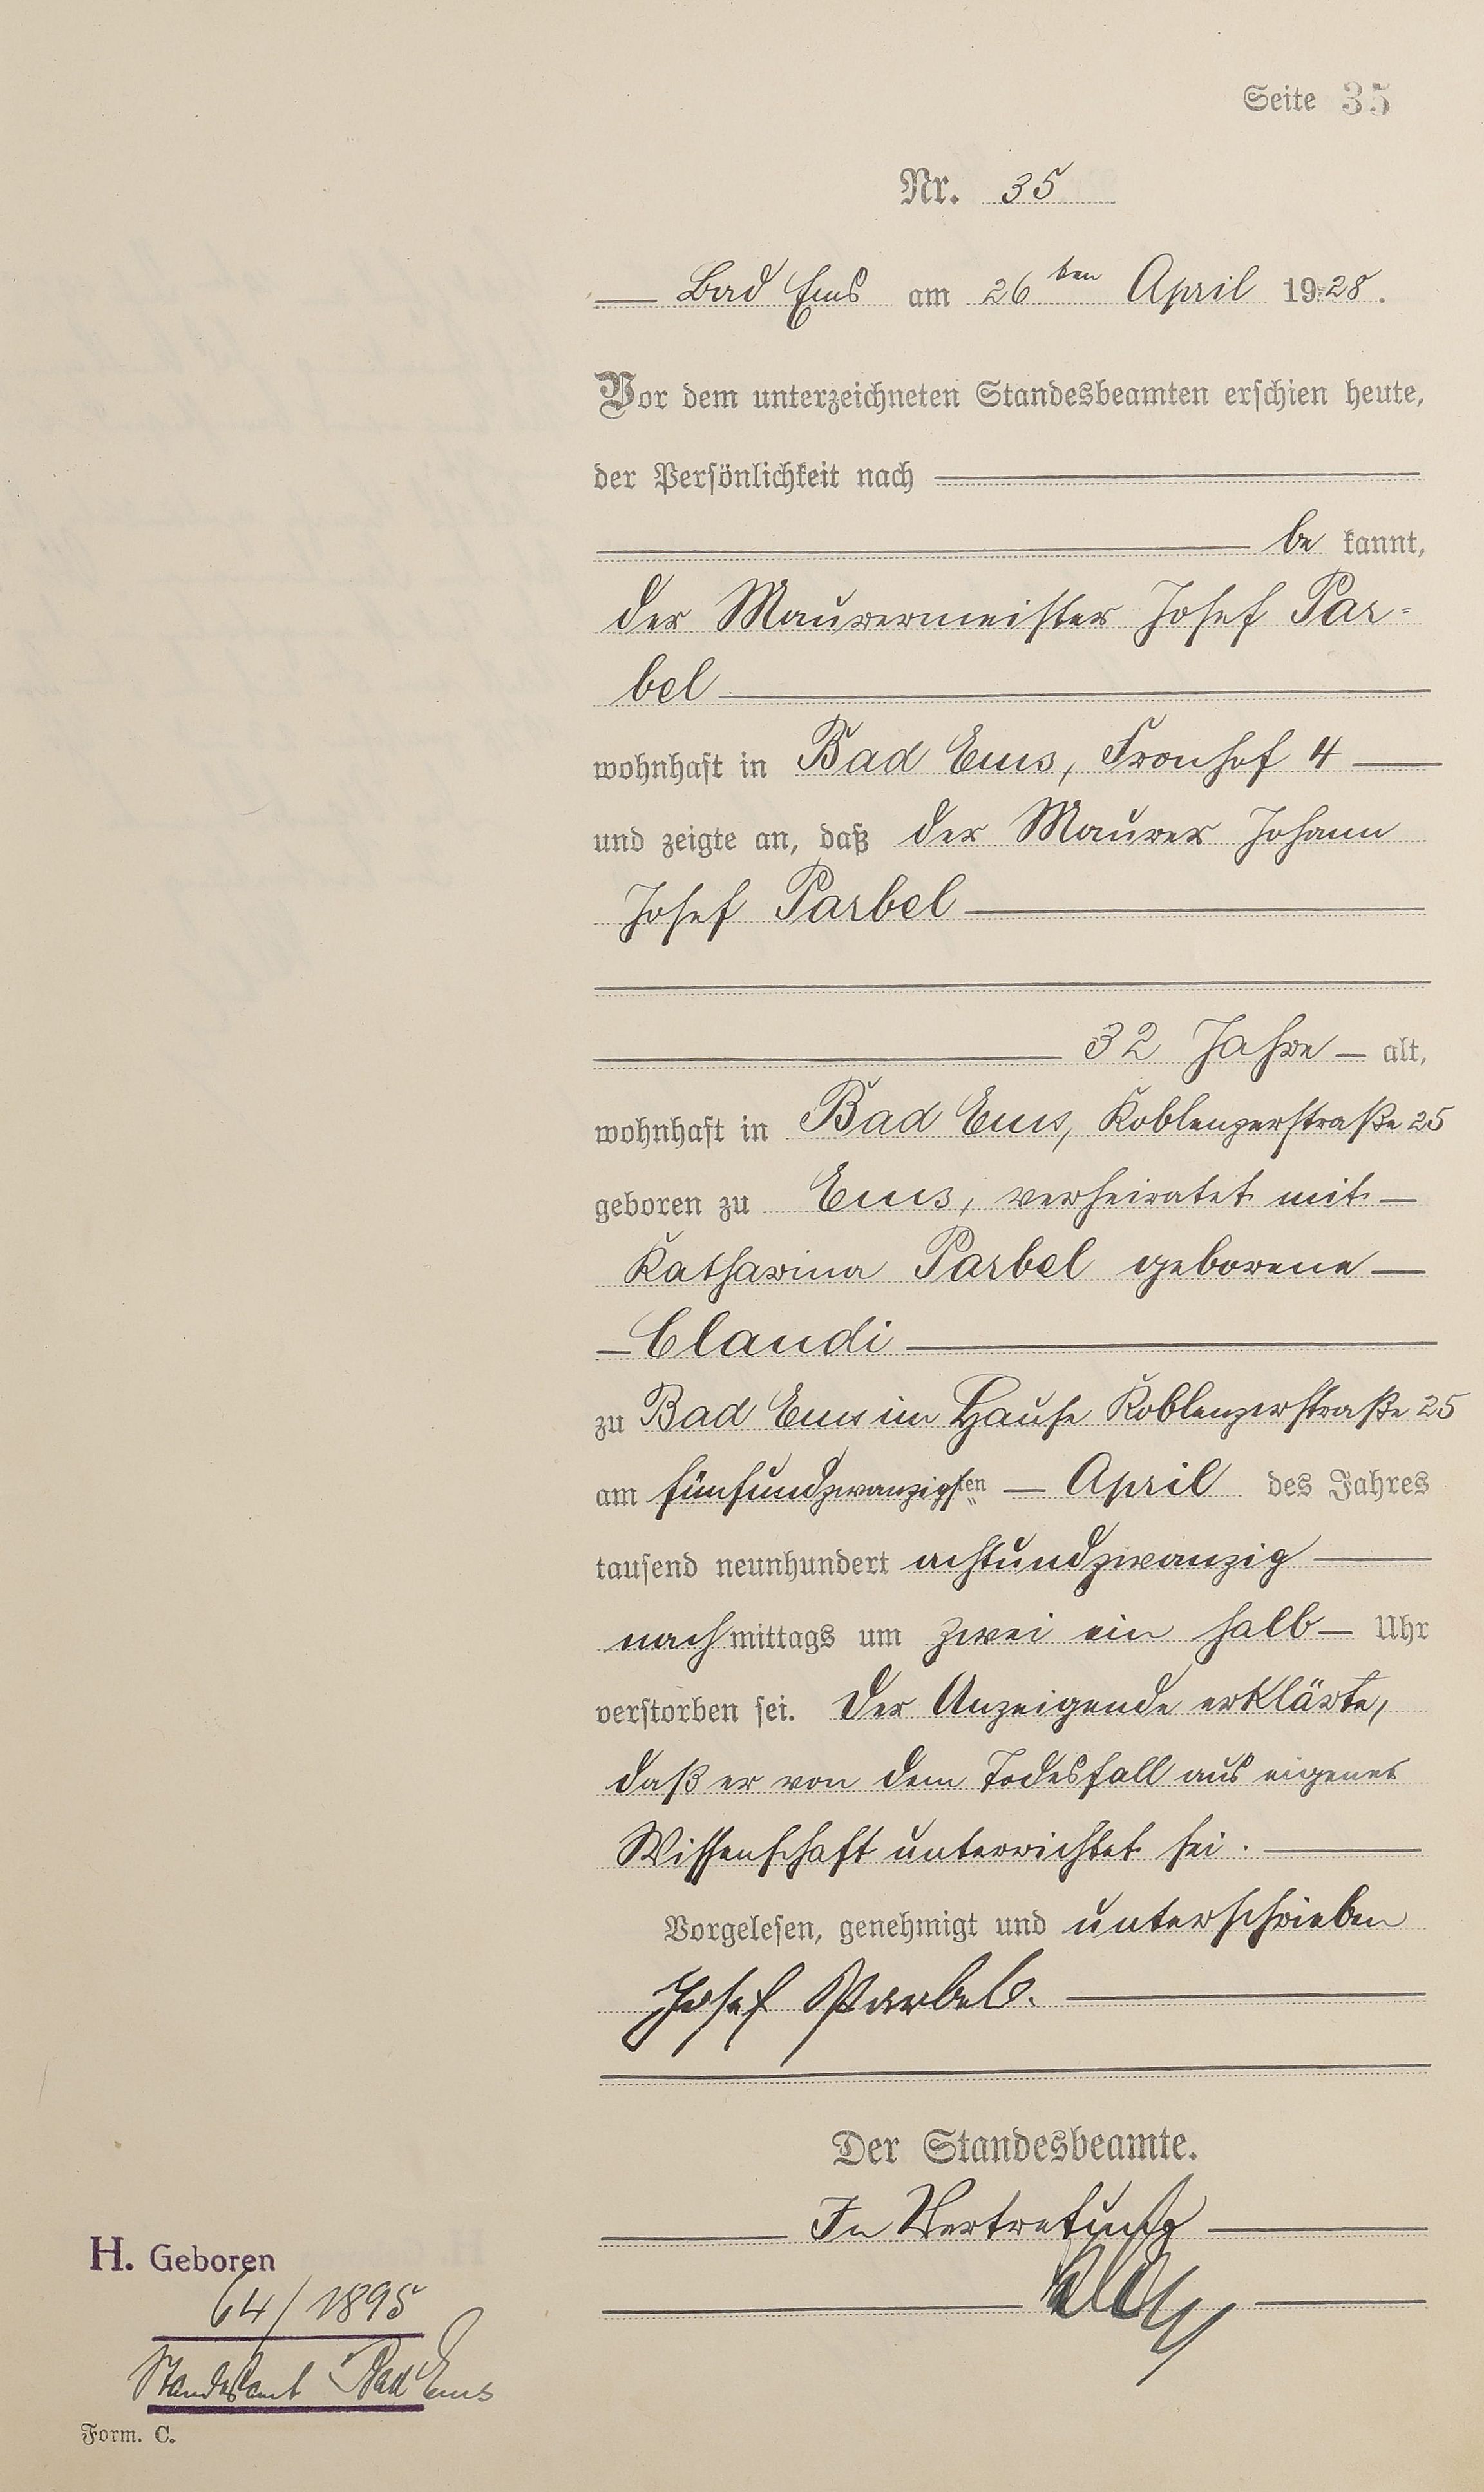 Seite 35
Nr. 35
Bad Ems am 26ten April 1928.
Vor dem unterzeichneten Standesbeamten erschien heute,
der Persönlichkeit nach
be kannt,
der Maurermeister Josef Par=
bel
wohnhaft in Bad Ems, Fronhof 4
und zeigte an, daß der Maurer Johann
Josef Parbel
32 Jahre alt,
wohnhaft in Bad Ems, Koblenzerstraße 25
geboren zu Ems, verheiratet mit
Katharina Parbel geborene
Claudi
zu Bad Ems im Hause Koblenzerstraße 25
am fünfundzwanzigsten April des Jahres
tausend neunhundert achtundzwanzig
nachmittags um zwei ein halb Uhr
verstorben sei. Der Anzeigende erklärte,
daß er von dem Todesfall aus eigener
Wissenschaft unterrichtet sei.
Vorgelesen, genehmigt und unterschrieben
Josef Parbel.
Der Standesbeamte.
In Vertretung
H. Geboren
64/1895
Standesamt Bad Ems
Form. C.